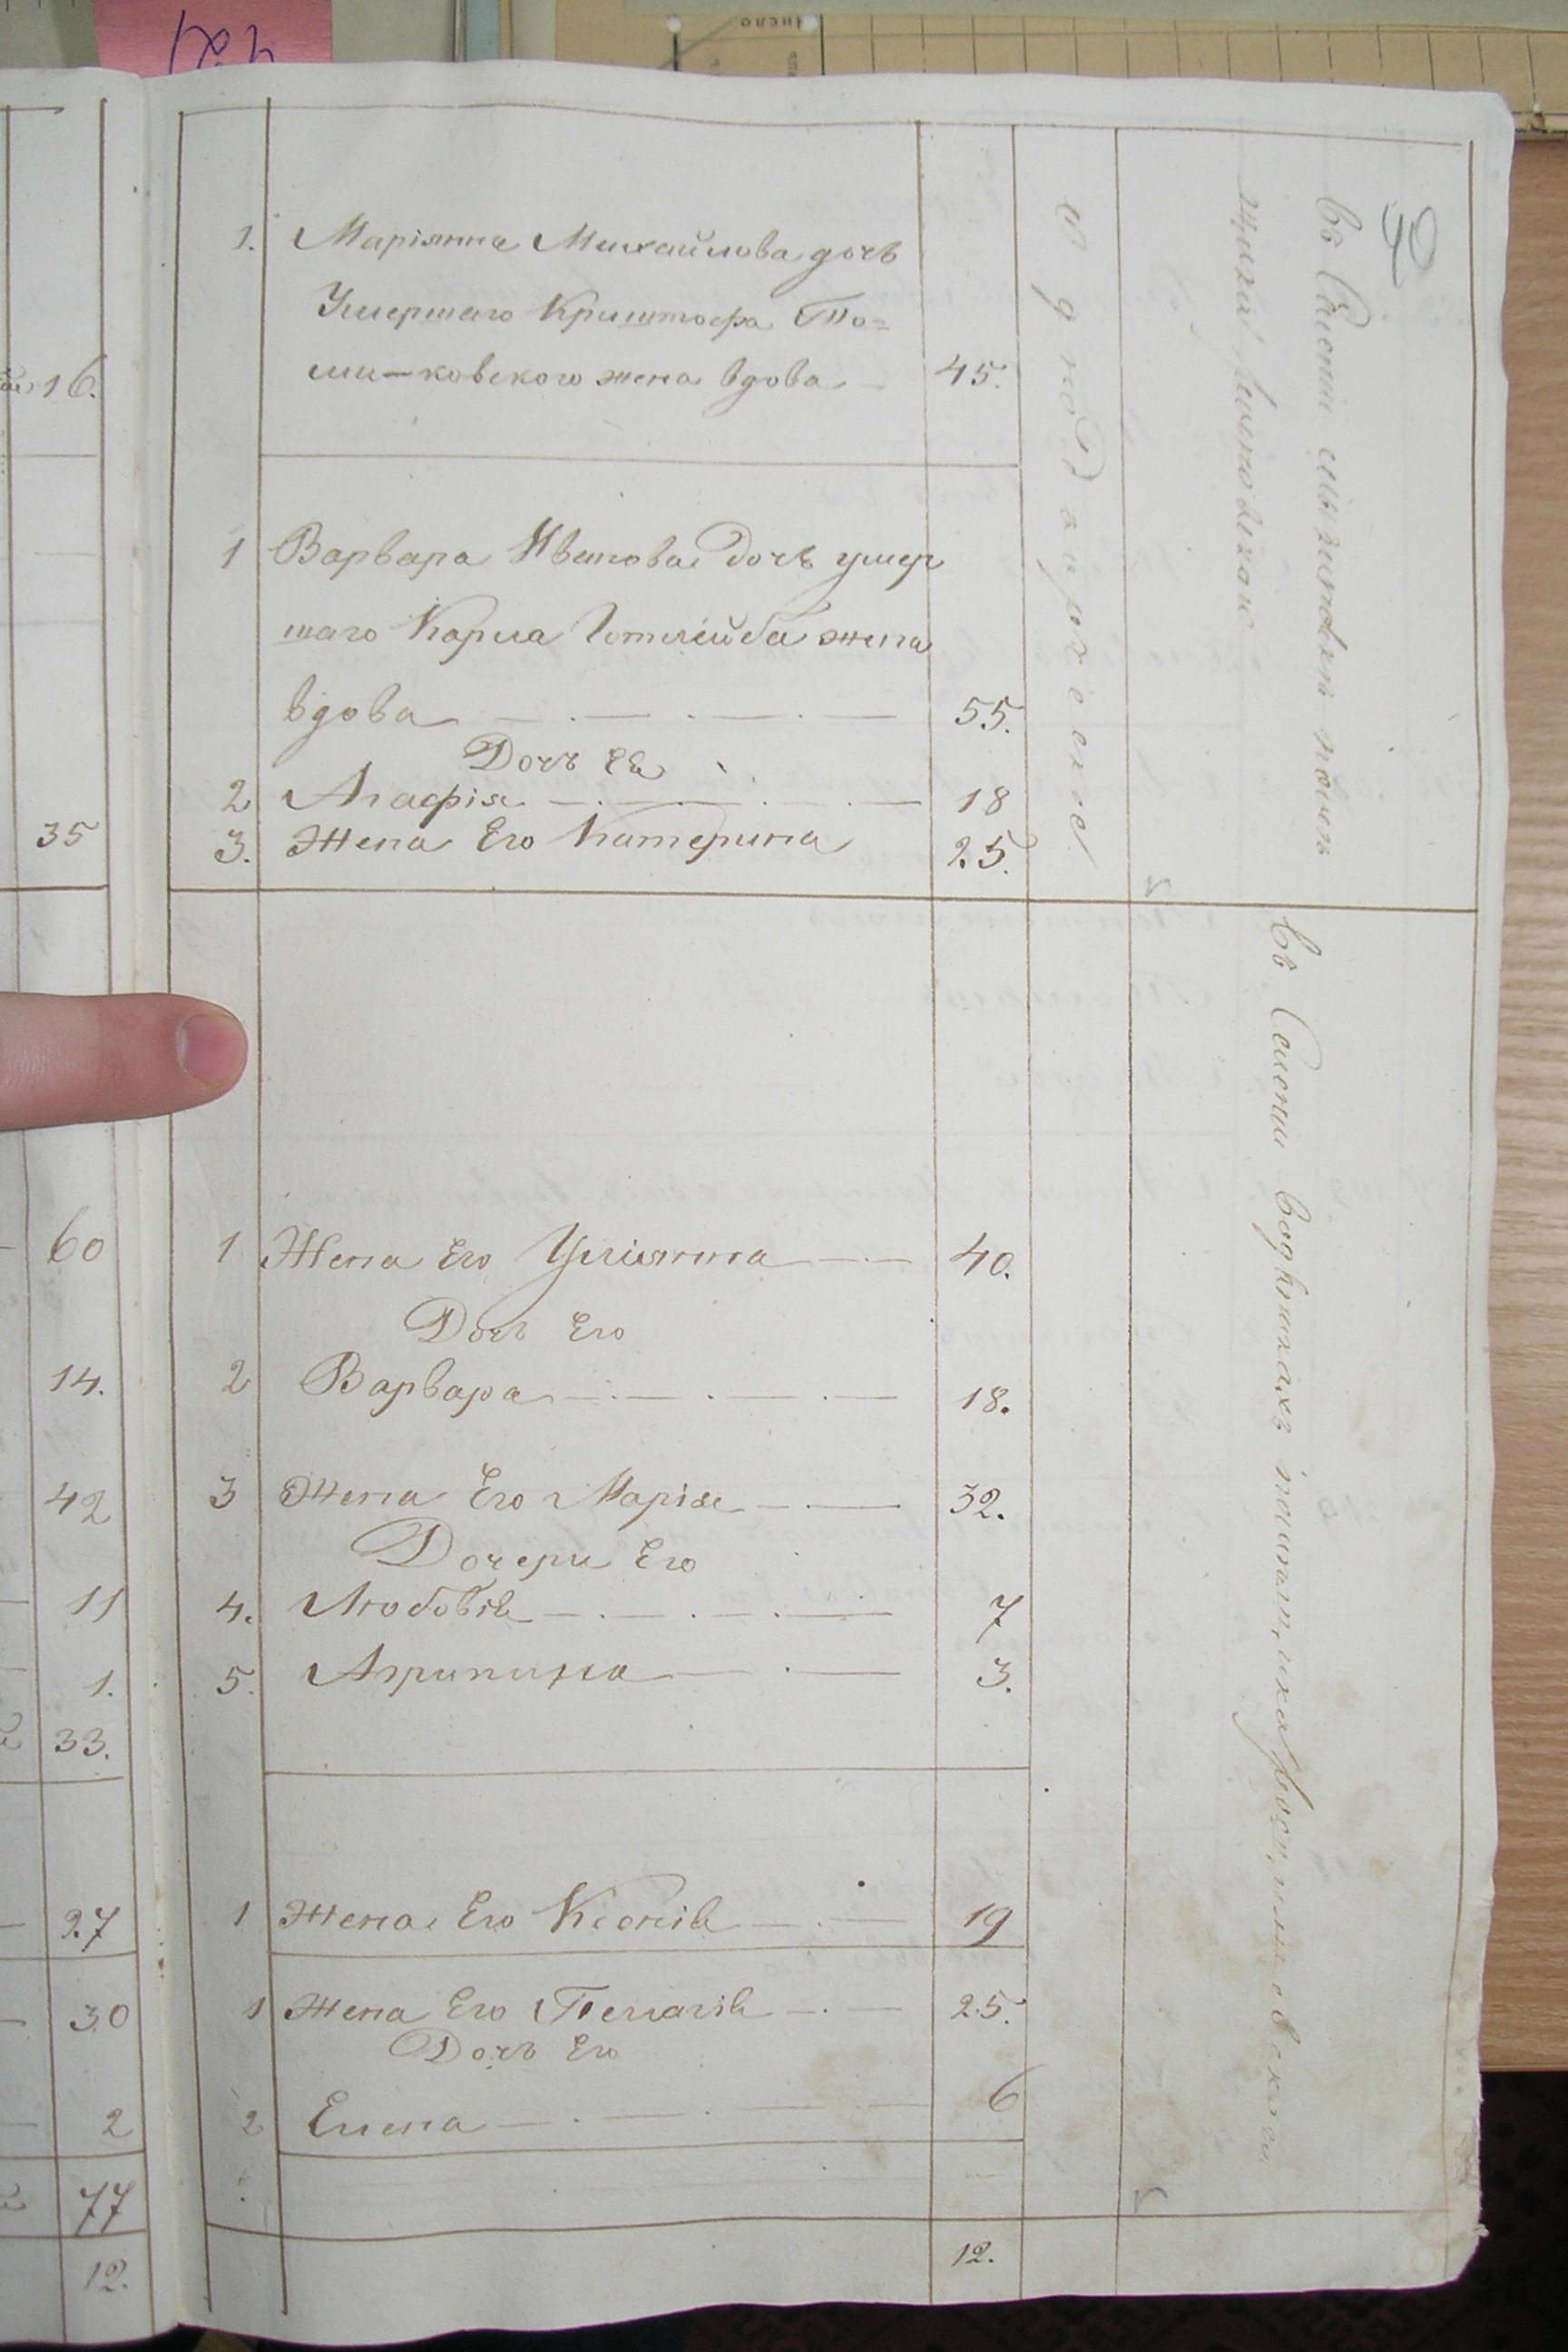 40
16.
35
60
14.
42
11
1.
33.
27
30
2
77
12.
1. Маріянна Михайлова дочь
Умершаго Криштофа То=
ми-ковского жена вдова 45.
1 Варвара Иванова дочь умер
шаго Карла Готлійба жена
вдова 55.
Дочь Ея
2 Агафія 18
3. Жена Его Катерина 25.
1 Жена Его Уліянна 40.
Дочь Его
2 Варвара 18.
3 Жена Его Марія 32.
Дочери Его
4. Любовь 7
5. Агрипина 3.
1 Жена Его Ксенія 19
1 Жена Его Пелагія 25.
Дочь Его
2 Елена 6
12.
Въ Селеніи
Въ Селеніи